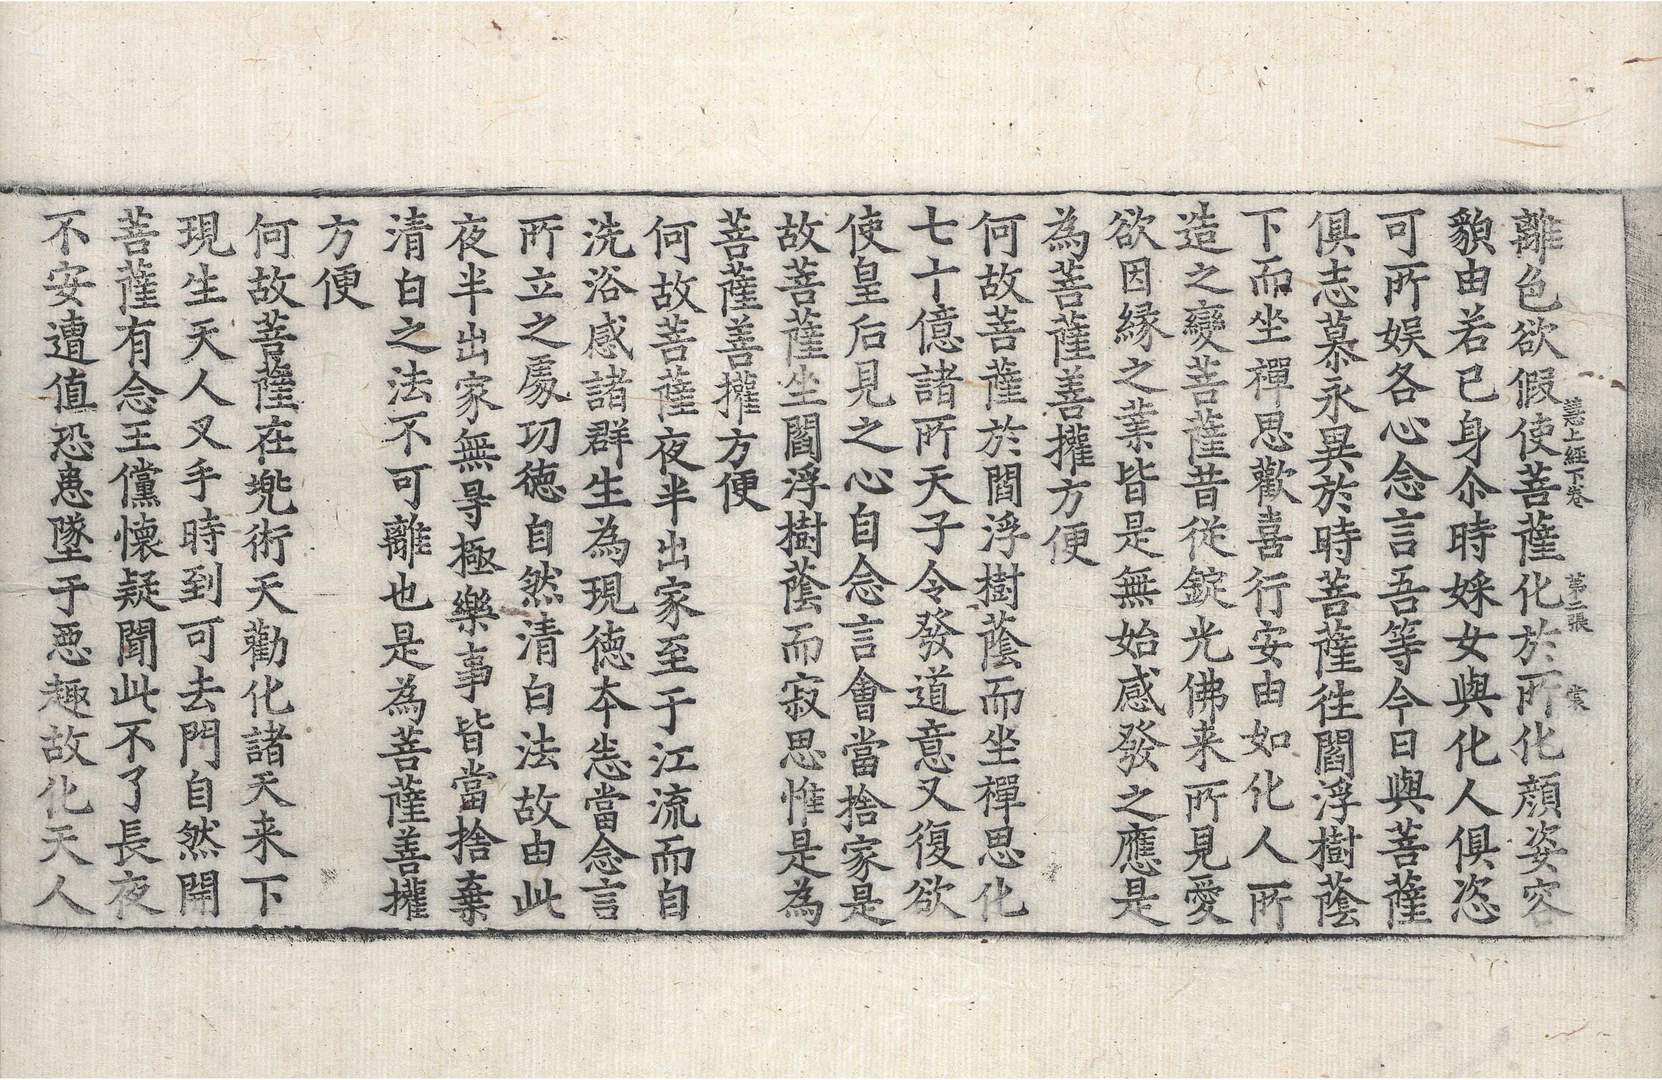 離色欲假使菩薩化於所化顔姿容
貌由若己身尒時婇女與化人俱恣
可所娱各心念言吾等今日與菩薩
俱志慕永異於時菩薩往閻浮樹蔭
下而坐禪思歡喜行安由如化人所
造之變菩薩昔從錠光佛来所見愛
欲因縁之業皆是無始感發之應是
為菩薩善攉方便
何故菩薩於閻浮樹蔭而坐禪思化
七十億諸所天子令發道意又復欲
使皇后見之心自念言會當捨家是
故菩薩坐閻浮樹蔭而寂思惟是為
菩薩善攉方便
何故菩薩夜半出家至于江流而自
洗浴感諸群生為現徳本恙當念言
所立之處功徳自然清白法故由此
夜半出家無㝵極樂事皆當捨棄
清白之法不可離也是為菩薩善攉
方便
何故菩薩在兠術天勸化諸天来下
現生天人叉手時到可去門自然開
菩薩有念王儻懷疑聞此不了長夜
不安遭值恐患墜于惡趣故化天人
慧上經下卷 第二張 裳